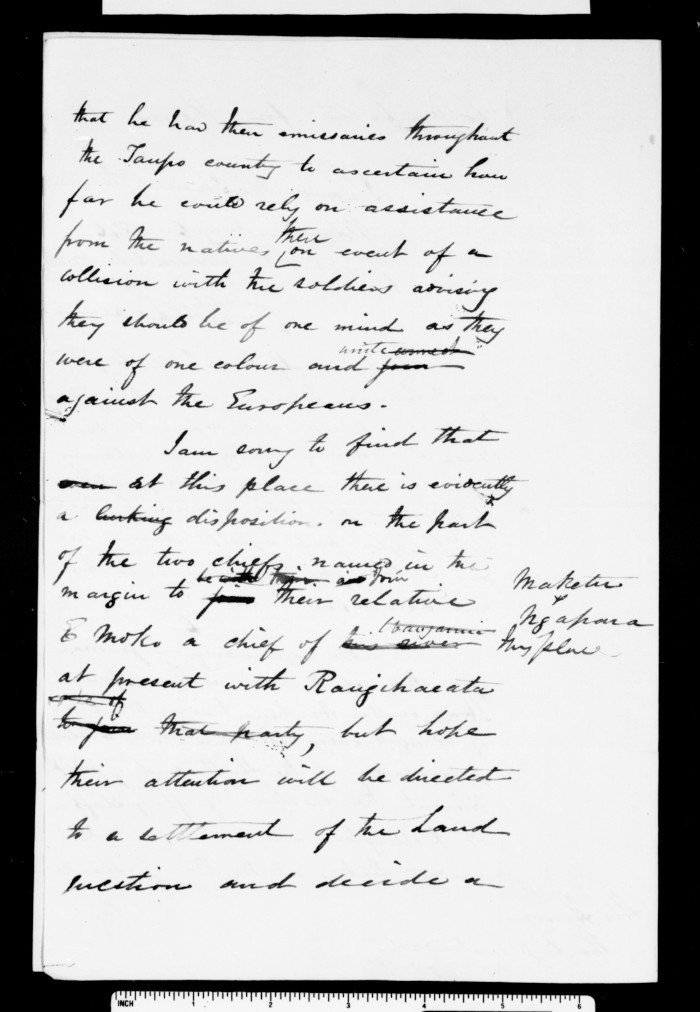 that he had then emissaries throughout
the Taupo country to ascertain how
far he could rely on assistance
from the natives then on event of a
collision with the soldiers advising
they should be of one mind as they
were of one colour and unite
against the Europeans.
I am sorry to find that
even at this place there is evidently
a lurking disposition on the part
of the two chiefs named in the
margin to join their relative
Maketu
& Ngapara
this place
E Moko a chief of Wanganui this river
at present with Rangihaeata
to join that party, but hope
their attention will be directed
to a settlement of the Land
question and decide a
INCH 1 2 3 4 5 6